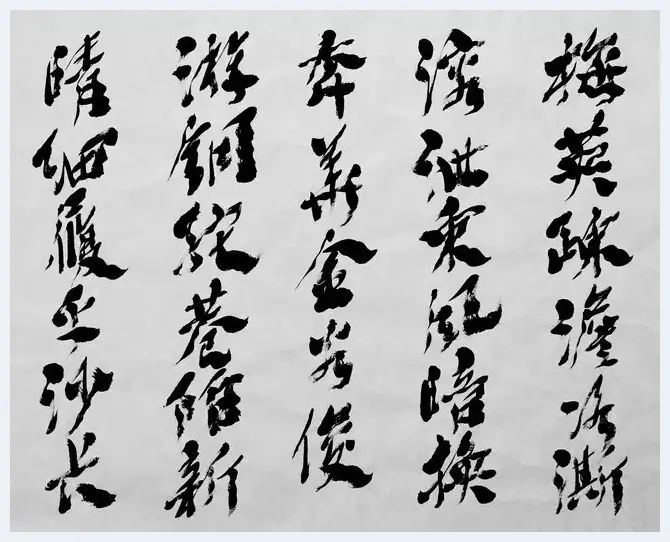 梅英疎澹冰澌
溶泄東風暗換
年華金谷俊
游銅駝巷陌新
晴細履平沙長